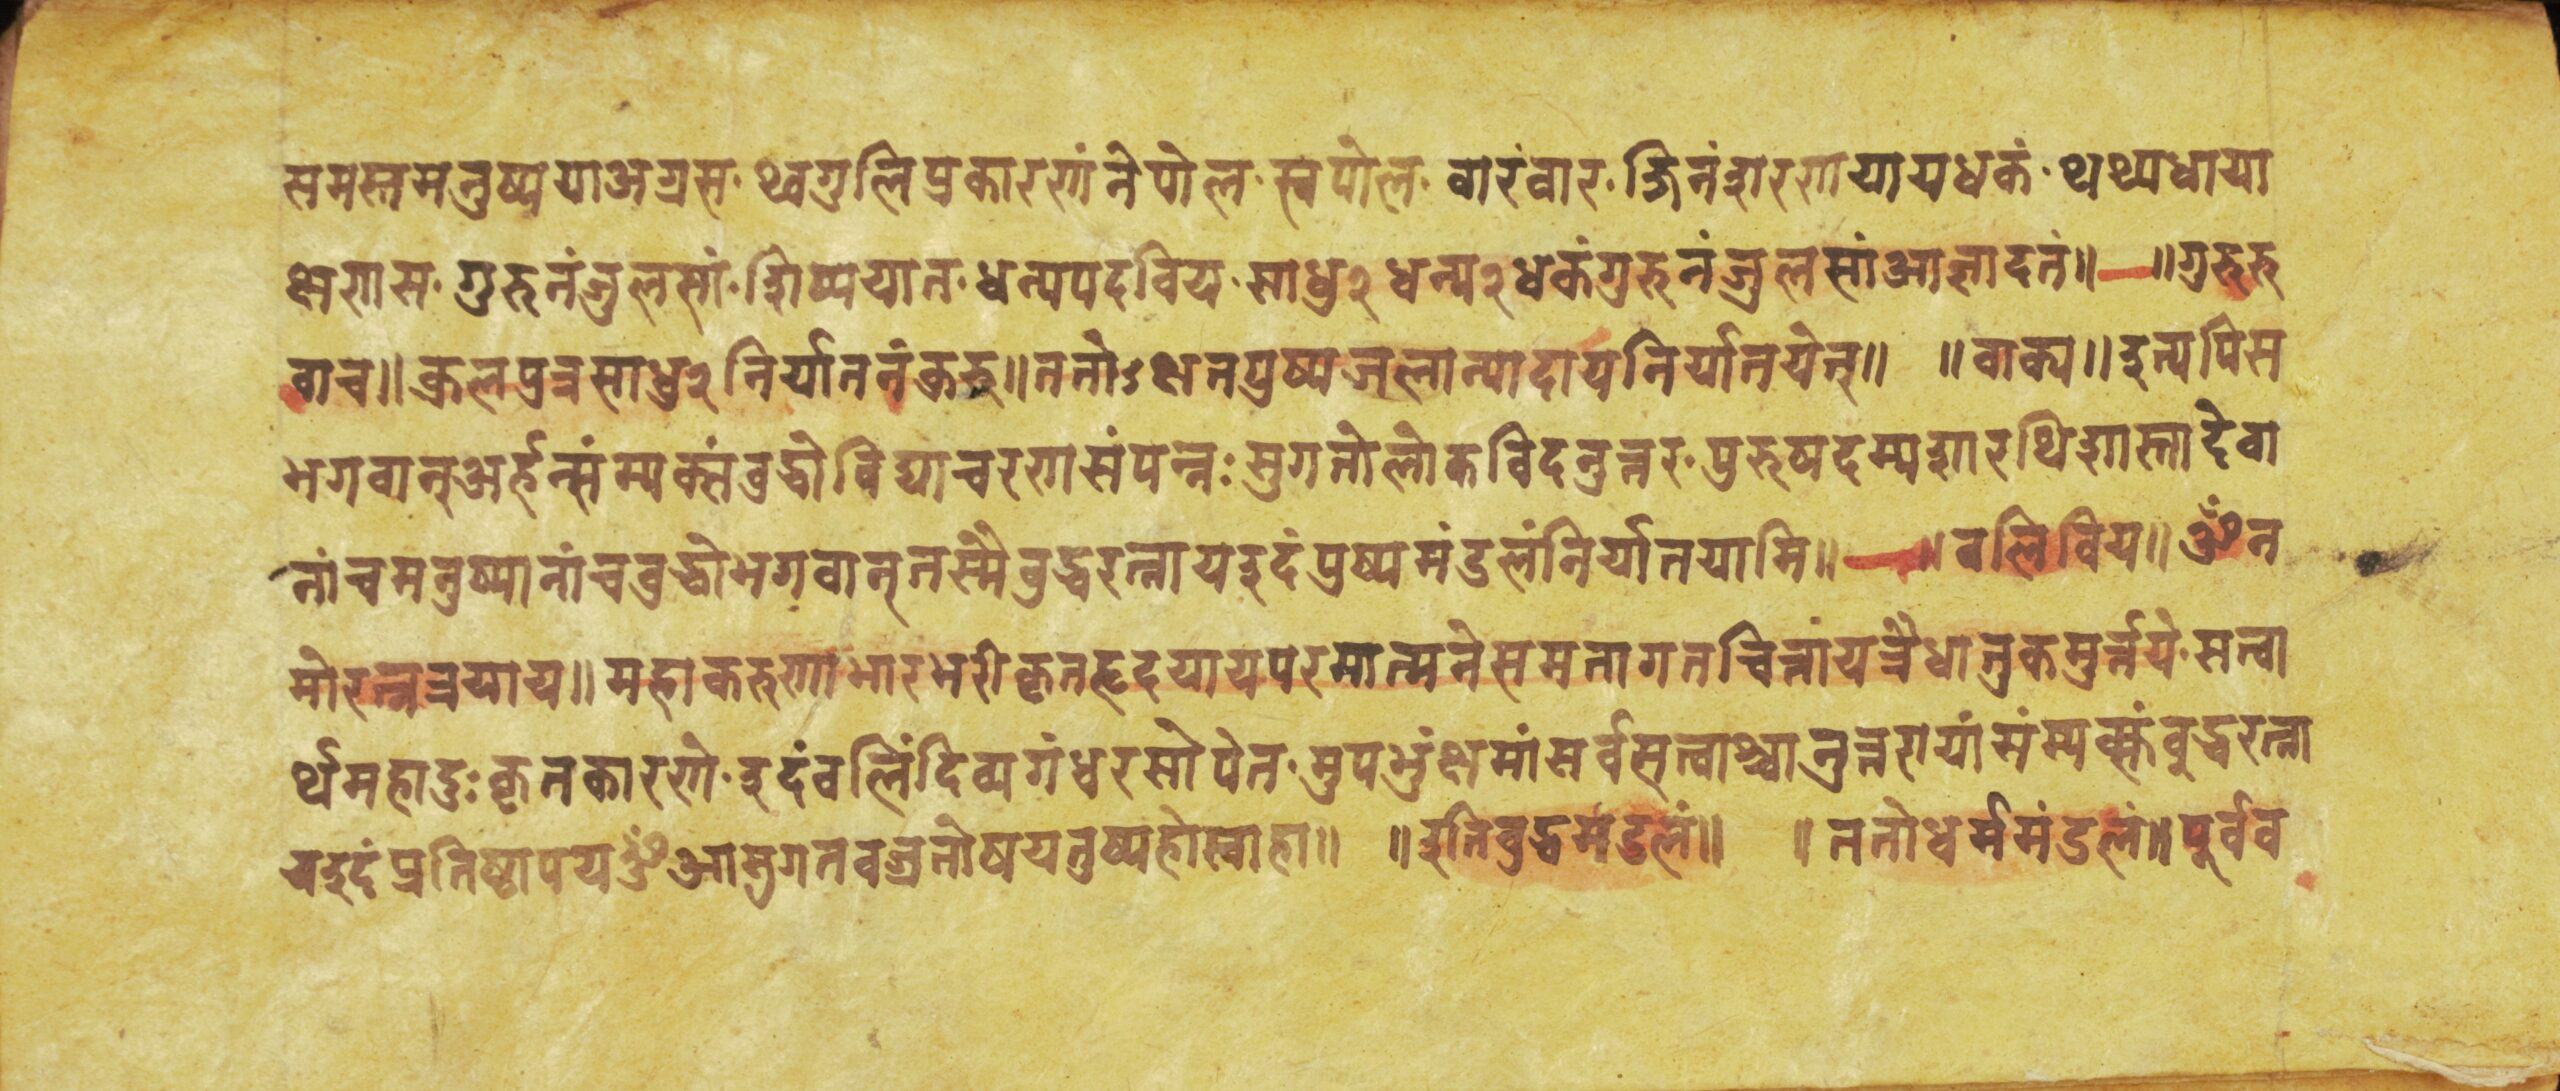 समस्तमनुष्यया अग्रस· थ्वगुलिप्रकारणं नेपोल· स्वपोल· वारंवार· जिनं शरणयायधकं· थथ्यधाया
क्षणस· गुरुनं जुलसां· शिष्ययात· धन्यपदविय· साधु२ धन्य२ धकं गुरुनं जुलसां आज्ञादतं॥ — ॥गुरुरु
वाच॥ कुलपुत्र साधु२ निर्यातनं कुरु॥ ततोऽक्षतपुष्पजलान्यादाय निर्यातयेत्॥ ॥वाक्य॥ इत्यपि स
भगवान् अर्हन्त्संम्यक्संबुद्धो विद्याचरणसंपन्नः सुगतो लोकविदनुत्तर· पुरुषदम्यशारथि शास्ता देवा
नां च मनुष्यानां च बुद्धो भगवान् तस्मै बुद्धरत्नाय इदं पुष्पमंडलं निर्यातयामि॥ — ॥बलिविय॥ ॐ न
मो रत्नत्रयाय॥ महाकरुणाभारभरीकृतहृदयाय परमात्मने समतागतचित्तांय त्रैधातुकमुर्त्तये· सत्वा
र्थमहादुःकृतकारणे· इदं बलिं दिव्यगंधरसोपेत· मुपभुंक्ष मां सर्वसत्वाश्चानुत्तरायां संम्यक्संबुद्धरत्ना
य इदं प्रतिष्ठापय ॐ आ सुगतवज्रतोषय तुष्य हो स्वाहा॥ ॥इति बुद्धमंडलं॥ ॥ ततो धर्ममंडलं॥ पूर्वव